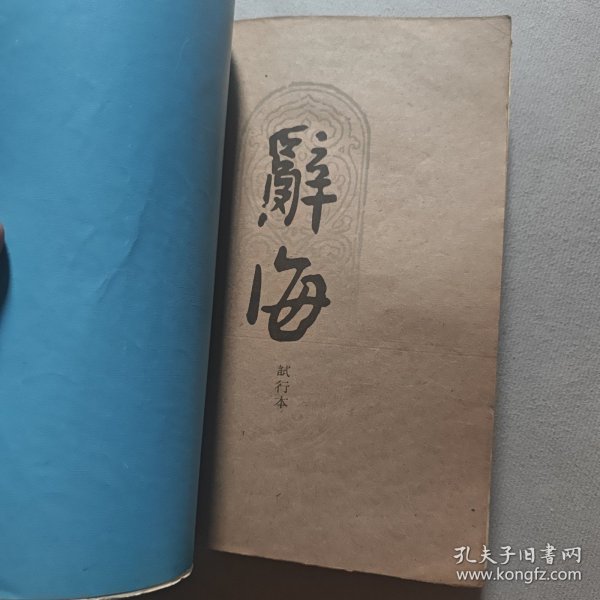 辭海
試行本
孔夫子旧書网
www.kongfz.com